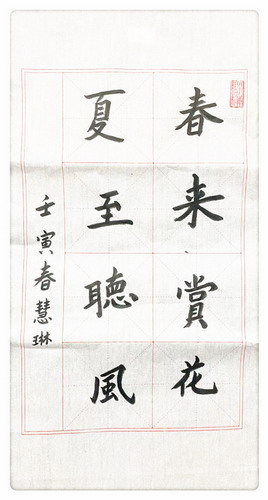 春来賞花
夏至聽風
壬寅春慧琳